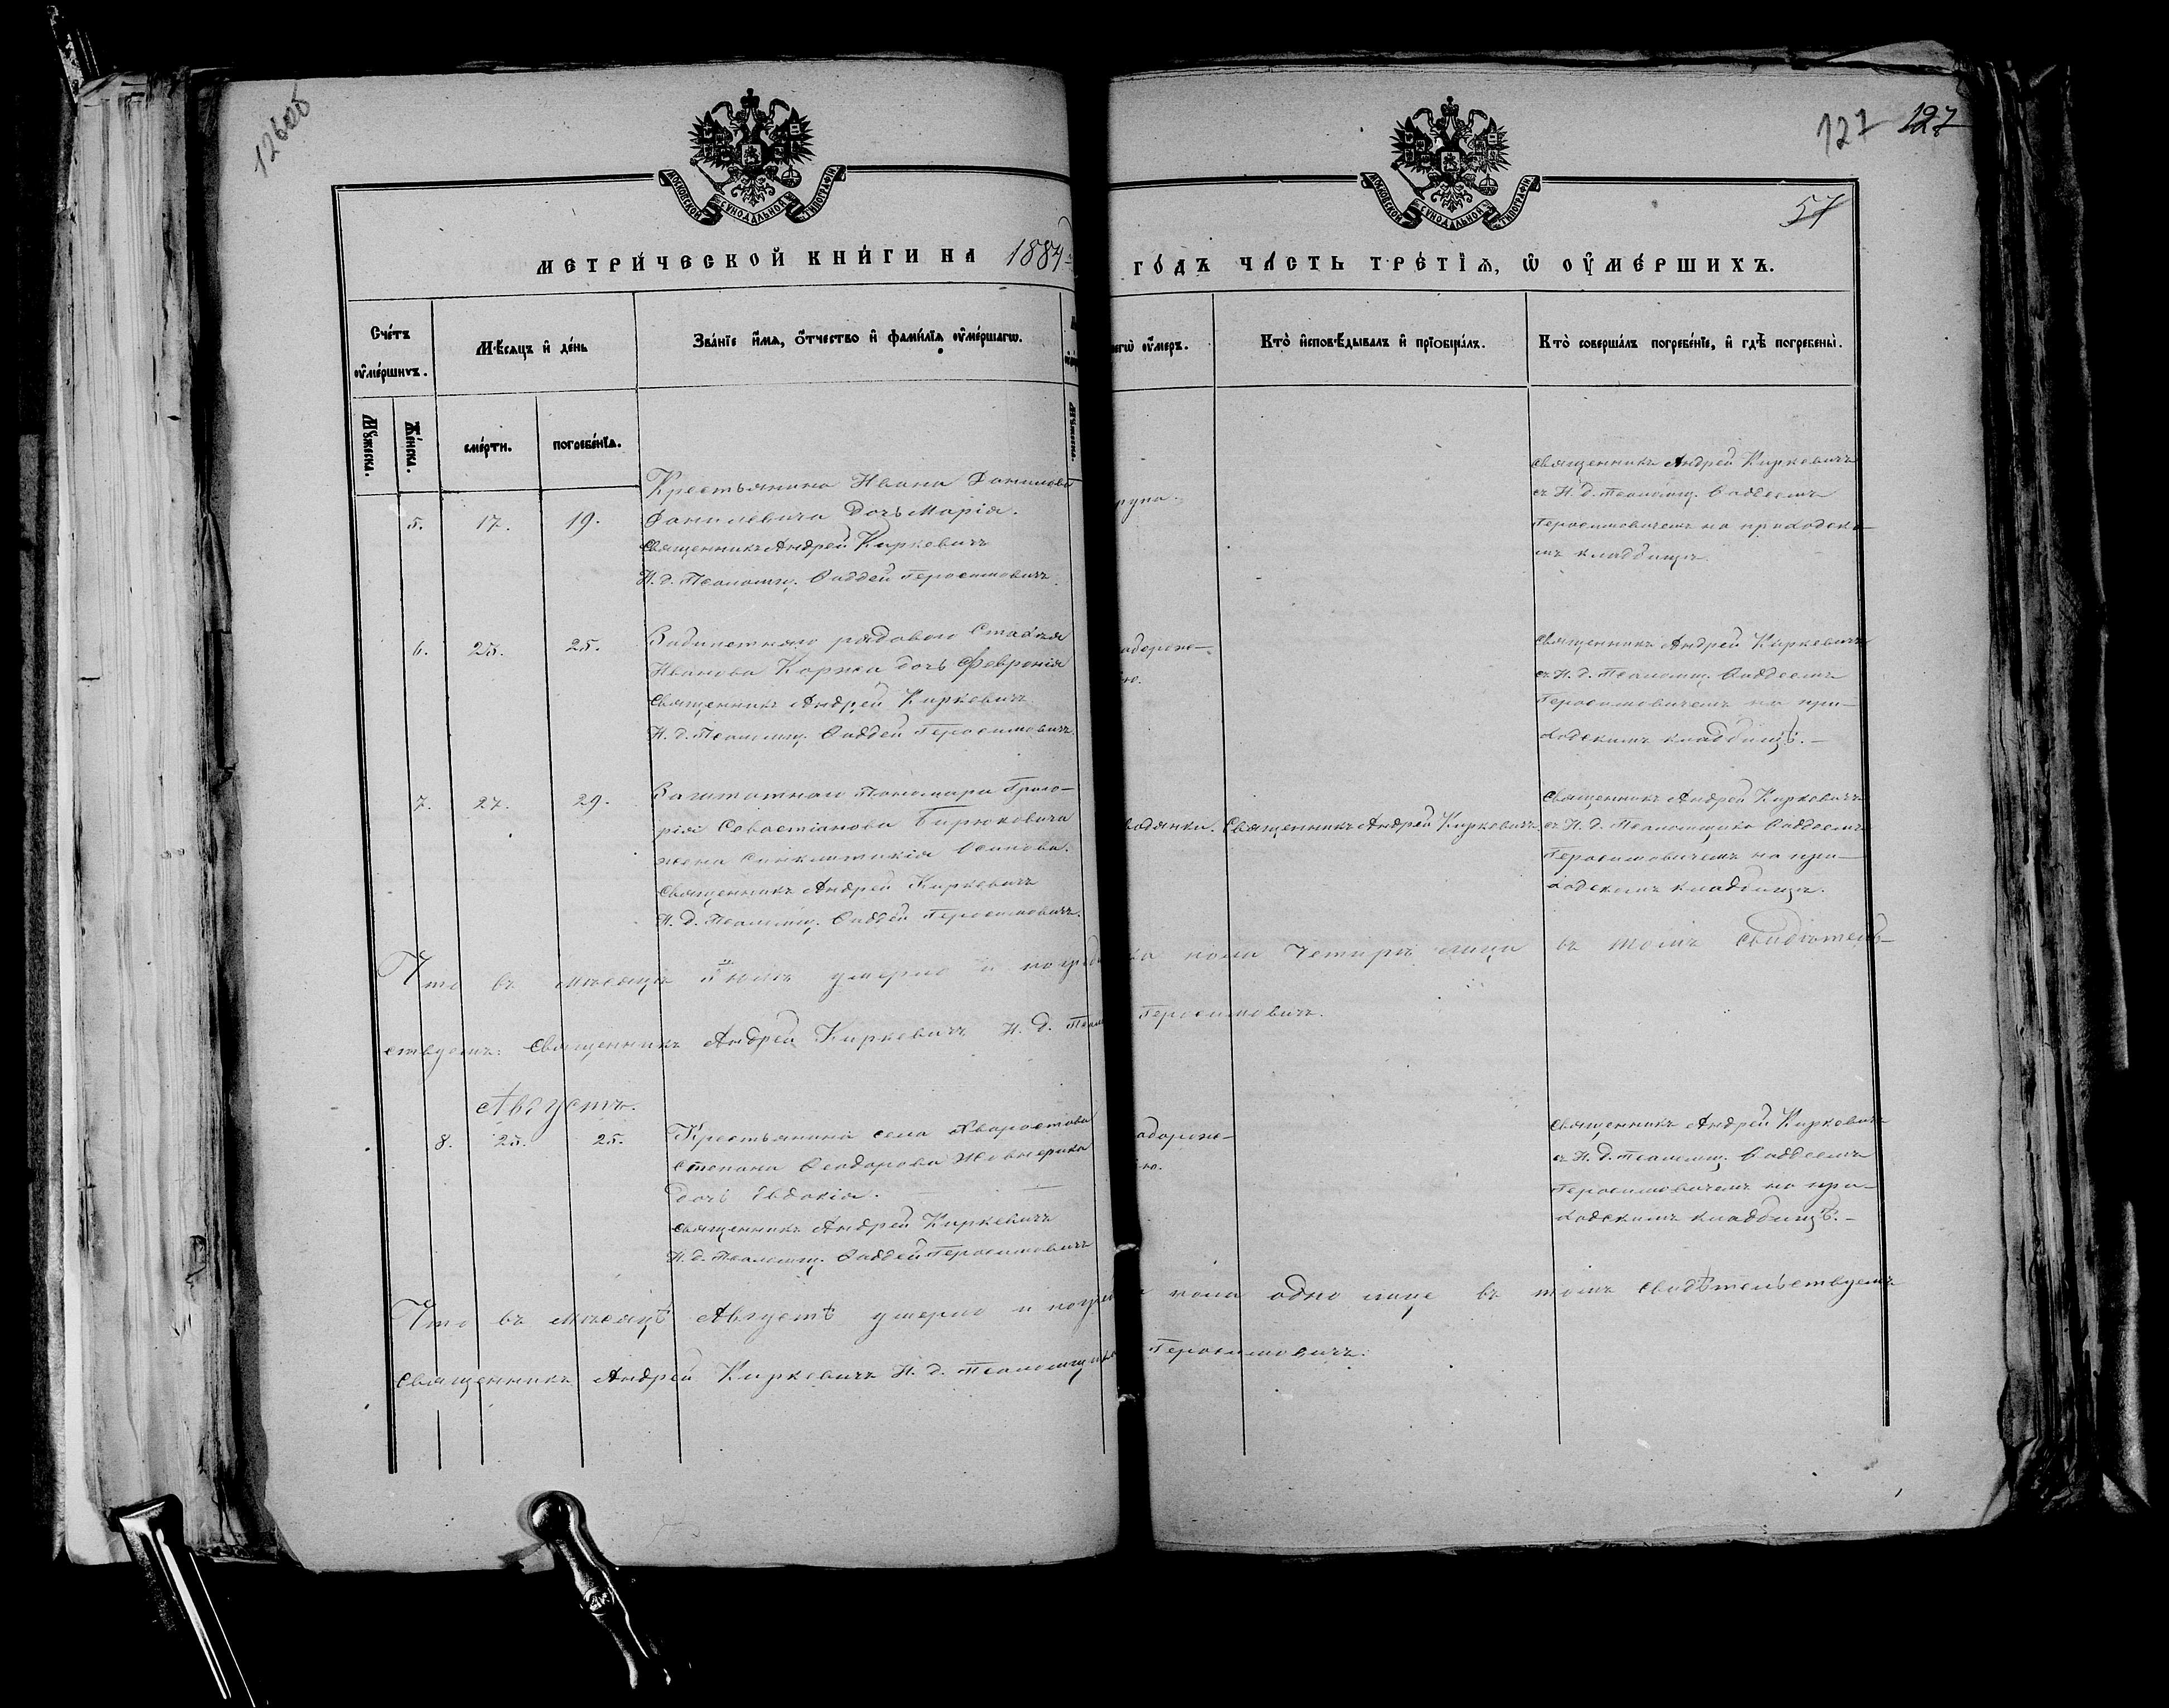 126об
127 127
57
МОСКОВСКОЙ СУНОДАЛЬНОЙ ТИПОГРАФІИ
МОСКОВСКОЙ СУНОДАЛЬНОЙ ТИПОГРАФІИ
МЕТРИ́ЧЕСКОЙ КНИ́ГИ НА 1884 ГО́ДЪ ЧА́СТЬ ТРЕ́ТІѦ, Ѡ ОУМЕ́РШИХЪ.
Сче́тъ оумершихъ.
Мѣсѧцъ и де́нь
Зва́нїе имѧ, о́тчество и фами́лїѧ оуме́ршагѡ.
чегѡ оу́меръ.
Кто̀ исповѣдывалъ и прїобща́лъ.
Кто̀ соверша́лъ погребе́нїе, и гдѣ̀ погребены̀.
Мꙋжеска.
Же́нска.
сме́рти.
погребе́нїѧ.
5. 17. 19.
Крестьянина Ивана Данилова
Данилевича дочь Марія.
Священникъ Андрей Киркевичъ
И. д. Псаломщ. Фаддей Герасимовичъ.
Священникъ Андрей Киркевичъ
съ И. д. Псаломщ. Фаддеемъ
Герасимовичемъ на приходско-
мъ кладбищѣ.
6. 23. 25.
рядового
Иванова Коржа дочь Февронія
Священникъ Андрей Киркевичъ
И. д. Псаломщ. Фаддей Герасимовичъ.
Священникъ Андрей Киркевичъ
съ И. д. Псаломщ. Фаддеемъ
Герасимовичемъ на при-
ходскимъ кладбищѣ.-
7. 27. 29.
Заштатнаго Пономаря Григо-
рія Севастіанова Бирюковича
жена Синклитикія Осипова.
Священникъ Андрей Киркевичъ
И. д. Псаломщ. Фаддей Герасимовичъ.
водянки.
Священникъ Андрей Киркевичъ
Священникъ Андрей Киркевичъ
съ И. д. Псаломщика Фаддеемъ
Герасимовичемъ на при-
ходскомъ кладбищѣ.
Что въ мѣсяцѣ Іюлѣ умерло и четыри лица въ томъ свидѣтель-
ствуемъ: Священникъ Андрей Киркевичъ И. д. Герасимовичъ.
Августъ.
8. 23. 25.
Крестьянина села Хворостова
Степана Феодорова
дочь Евдокія.
Священникъ Андрей Киркевичъ
И. д. Псаломщ. Фаддей Герасимовичъ
Священникъ Андрей Киркевичъ
съ И. д. Псаломщ. Фаддеемъ
Герасимовичемъ на при-
ходскимъ кладбищѣ.-
Что въ мѣсяцѣ Августѣ умерло и одно лице въ томъ свидѣтельствуемъ
Священникъ Андрей Киркевичъ И. д. Псаломщика Герасимовичъ.